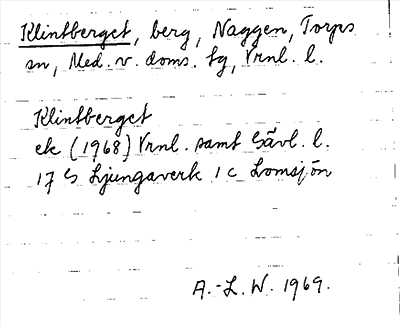 Klintberget, berg, Naggen, Torps
sn, Med. v. doms. fg, Vrnl. l.
Klintberget
ek (1968) Vrnl. samt Gävl. l.
17 G Ljungaverk 1 c Lomsjön
A.-L. W. 1969.